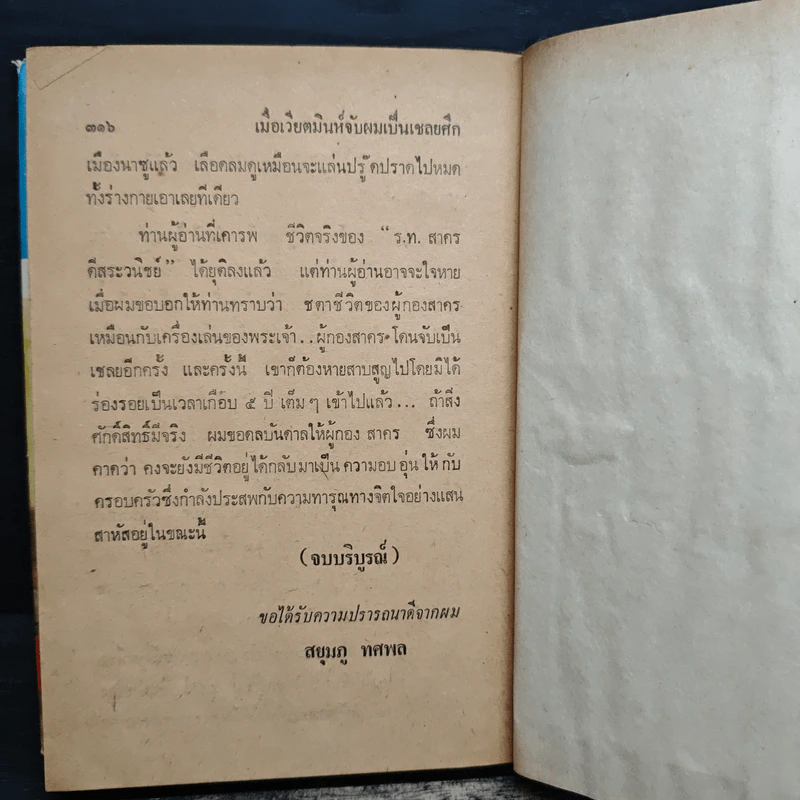 ๓๑๖ เมื่อเวียตมินห์จับผมเป็นเชลยศึก
เมืองนาซูแล้ว เลือดลมดูเหมือนจะแล่นปรู๊ดปราดไปหมด
ทั้งร่างกายเอาเลยทีเดียว
ท่านผู้อ่านที่เคารพ ชีวิตจริงของ “ ร.ท. สาคร
ดีสระวนิชย์ ” ได้ยุติลงแล้ว แต่ท่านผู้อ่านอาจจะใจหาย
เมื่อผมขอบอกให้ท่านทราบว่า ชตาชีวิตของผู้กองสาคร
เหมือนกับเครื่องเล่นของพระเจ้า..ผู้กองสาคร โดนจับเป็น
เชลยอีกครั้ง และครั้งนี้ เขาก็ต้องหายสาบสูญไปโดยมิได้
ร่องรอยเป็นเวลาเกือบ ๕ ปี เต็มๆ เข้าไปแล้ว... ถ้าสิ่ง
ศักดิ์สิทธิ์มีจริง ผมขอดลบันดาลให้ผู้กอง สาคร ซึ่งผม
คาดว่า คงจะยังมีชีวิตอยู่ ได้กลับมาเป็น ความอบ อุ่น ให้ กับ
ครอบครัวซึ่งกำลังประสพกับความทารุณทางจิตใจอย่างแสน
สาหัสอยู่ในขณะนี้
(จบบริบูรณ์)
ขอได้รับความปรารถนาดีจากผม
สยุมภู ทศพล